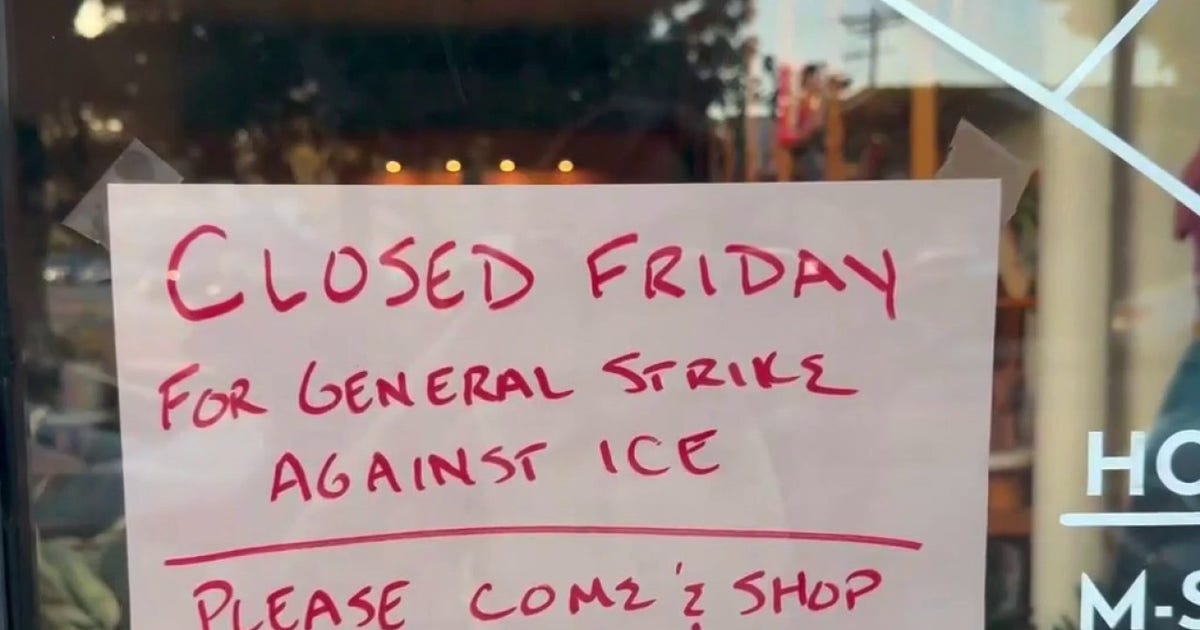 CLOSED FRIDAY
FOR GENERAL STRIKE
AGAINST ICE
PLEASE COME & SHOP
HO
M-S